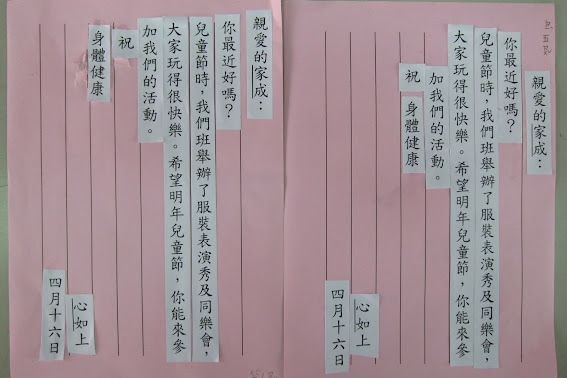 親愛的家成：
你最近好嗎？
兒童節時，我們班舉辦了服裝表演秀及同樂會，
大家玩得很快樂。希望明年兒童節，你能來參
加我們的活動。
祝
身體健康
心如上
四月十六日
親愛的家成：
你最近好嗎？
兒童節時，我們班舉辦了服裝表演秀及同樂會，
大家玩得很快樂。希望明年兒童節，你能來參
加我們的活動。
祝 身體健康
心如上
四月十六日